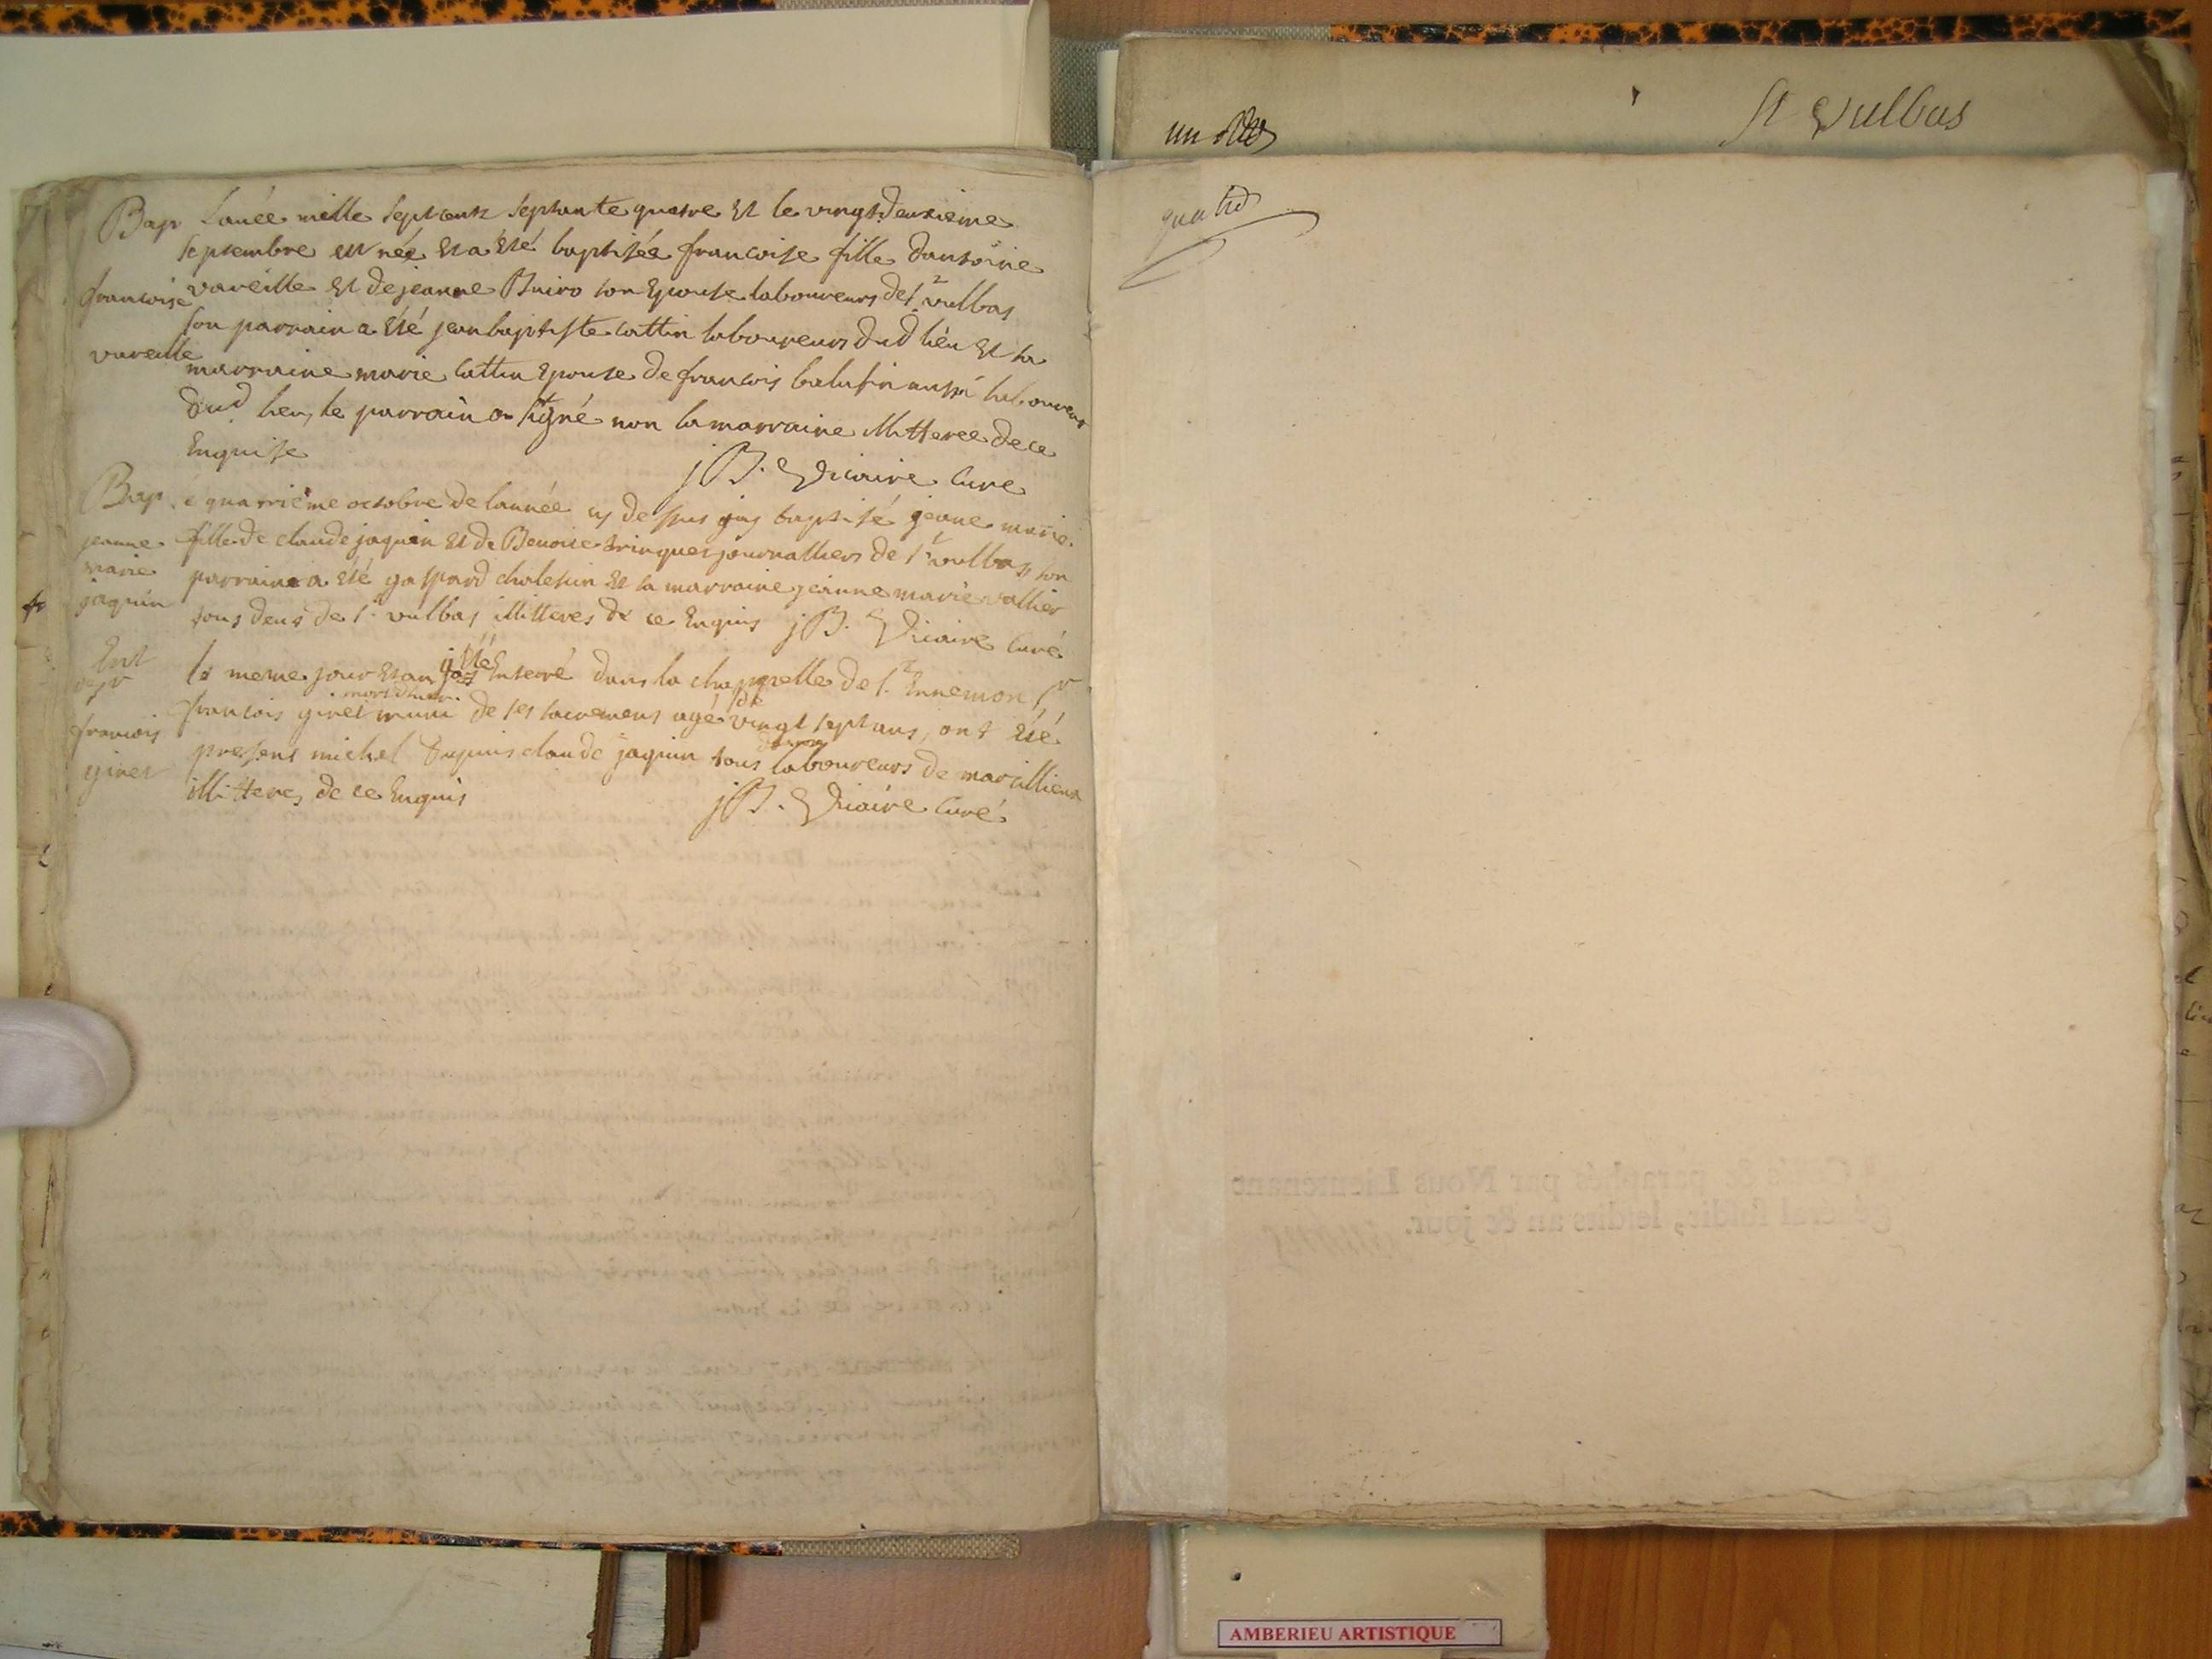 Bap Lanée mille sept cents septante quatre et le vingtdeuxieme
septembre est née et a été baptisée francoise fille dantoine
francoise vareille et de jeanne Buiro son epouse laboureurs de st vulbas
son parrain a été jean baptiste cattin laboureurs dud lieu et sa
vareille marraine marie cattin epouse de francois balufin aussi laboureur
dud lieu, le parrain a signé non la marraine illitteree de ce
Enquise
jB. Vicaire Curé
Bap. quatrieme octobre de lannée cy dessus jay baptisé jeane marie
jeanne fille de claude jaquin et de Benoite tringuer journalliers de st vulbas, son
marie parrain a été gaspard cholesin et sa marraine jeanne marie vallier
jaquin tous deux de st vulbas illitteres de ce Enquis jB. Vicaire Curé
Ent
le meme jour et an été Enterré dans la chappelle de st Ennemon sr
francois francois ginet muni de ses sacremens agé de vingt sept ans, ont été
ginet presens michel dupuis claude jaquin tous laboureurs de marcillieux
illitteres de ce Enquis
jB. Vicaire Curé
un
st Vulbas
Cottés & paraphés par Nous Lieutenant
général susdit, lesdits an & jour.
AMBERIEU ARTISTIQUE